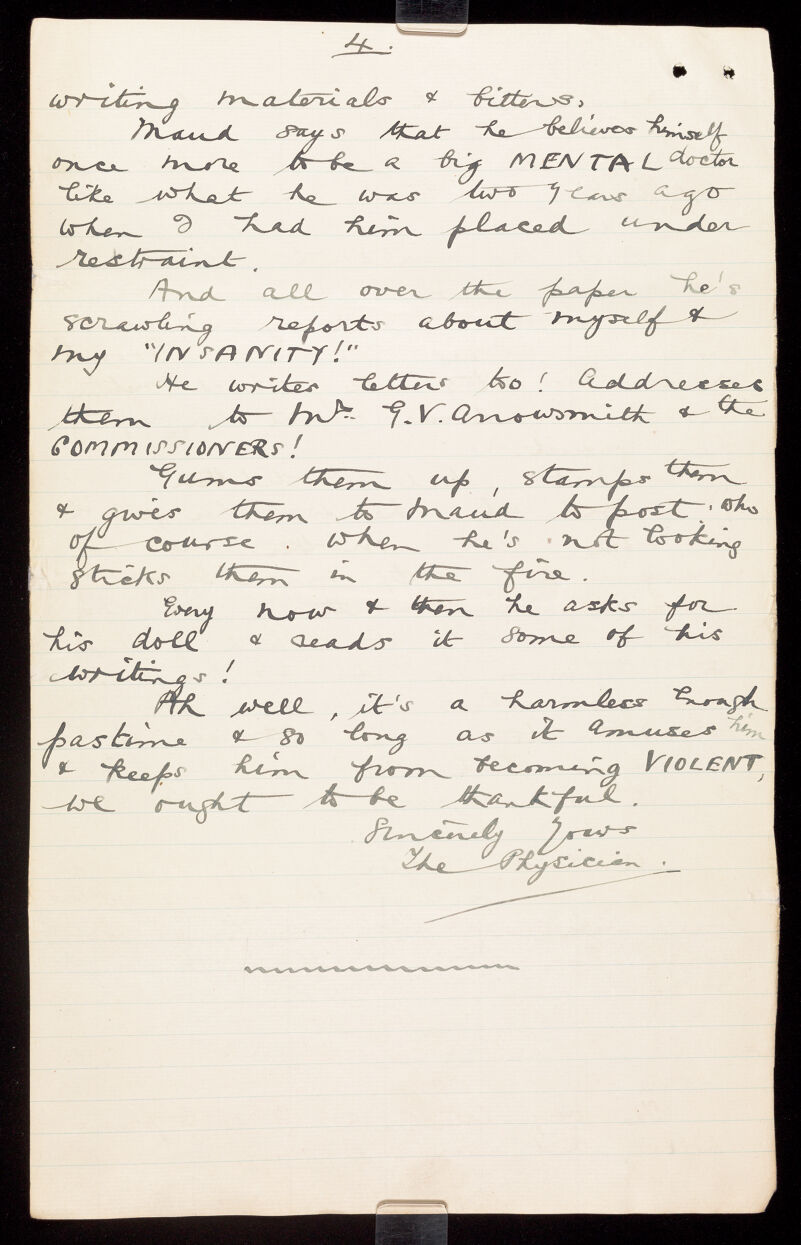 4.
writing materials & bitters.
Maud says that he believes himself
once more to be a big MENTAL doctor
like what he was two years ago
when I had him placed under
restraint.
And all over the paper he's
scrawling reports about myself &
my "INSANITY!"
He writes letters too! Addresses
them to Mr. G.V. Arrowsmith & the
COMMISSIONERS!
Gums them up, stamps them
& gives them to Maud to post. who
of course. when he's not looking
sticks them in the fire.
Every now & then he asks for
his doll & reads it some of his
writings!
Ah well, it's a harmless enough
pastime & so long as it amuses him
& keeps him from becoming VIOLENT,
we ought to be thankful.
Sincerely Yours
The Physician.